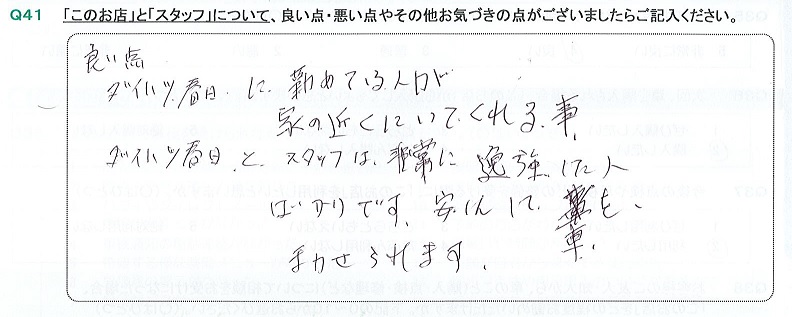 Q41 「このお店」と「スタッフ」について、良い点・悪い点やその他お気づきの点がございましたらご記入ください。
良い点
ダイハツ春日.に勤めている人が
家の近くにいてくれる.事.
ダイハツ春日.と.スタッフは.非常に勉強.した人
ばかりです.安心して.車を.
まかせられます.